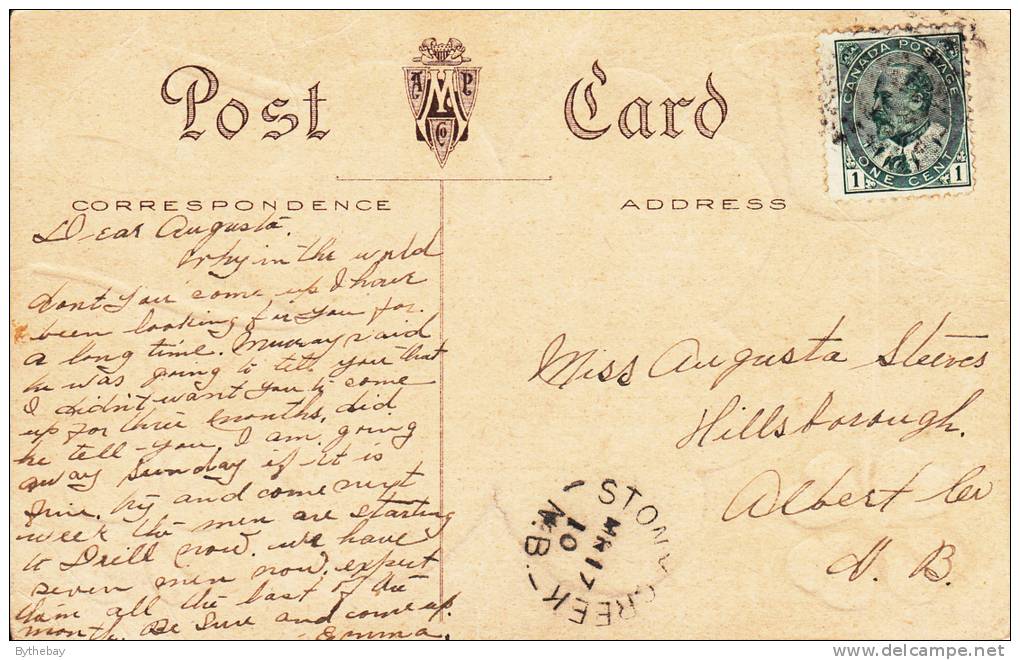 Post Card
A M P
Co
CANADA POSTAGE
ONE CENT
1 1
CORRESPONDENCE
ADDRESS
Dear Augusta.
Why in the world
dont you come up I have
been looking for you for
a long time. Murray said
he was going to tell you that
I didn't want you to come
up for three months, did
he tell you. I am going
away Sunday if it is
fine. try and come next
week the men are starting
to Drill now. we have
seven men now. expect
them all the last of the
month. Be sure and come up.
Emma.
Miss Augusta Steeves
Hillsborough.
Albert Co
N. B.
STONY CREEK
MR 17
10
N.B.
Bythebay
www.delcampe.net